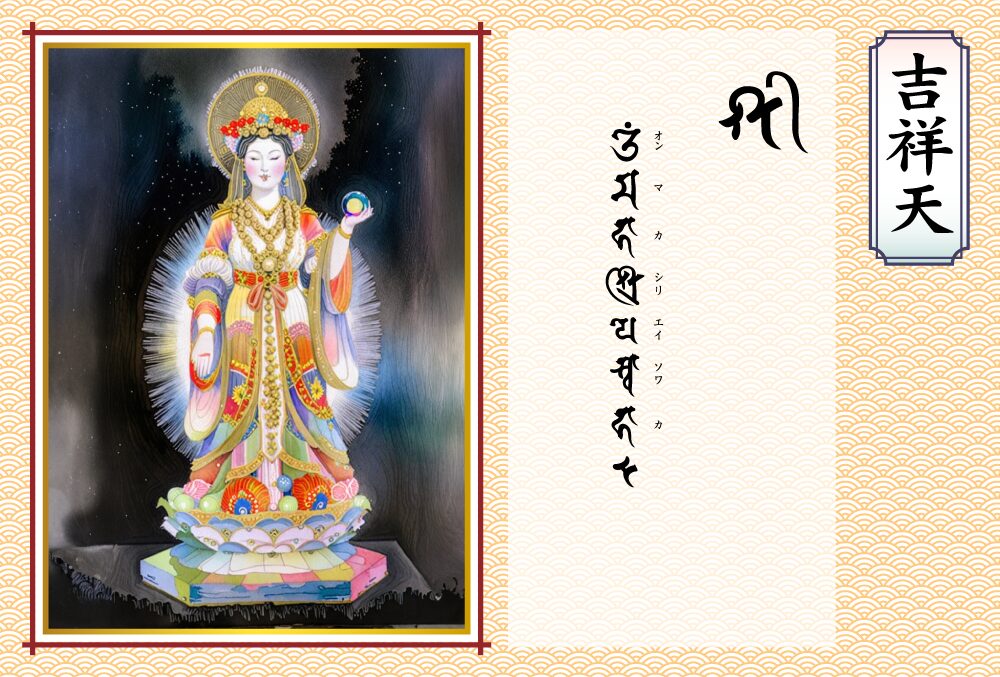 吉祥天
𑖫𑖿𑖨𑖱
𑖌𑖼𑖦𑖮𑖯𑖫𑖿𑖨𑖱𑖧𑖭𑖿𑖪𑖯𑖮𑖯
オン マ カ シリ エイ ソワ カ